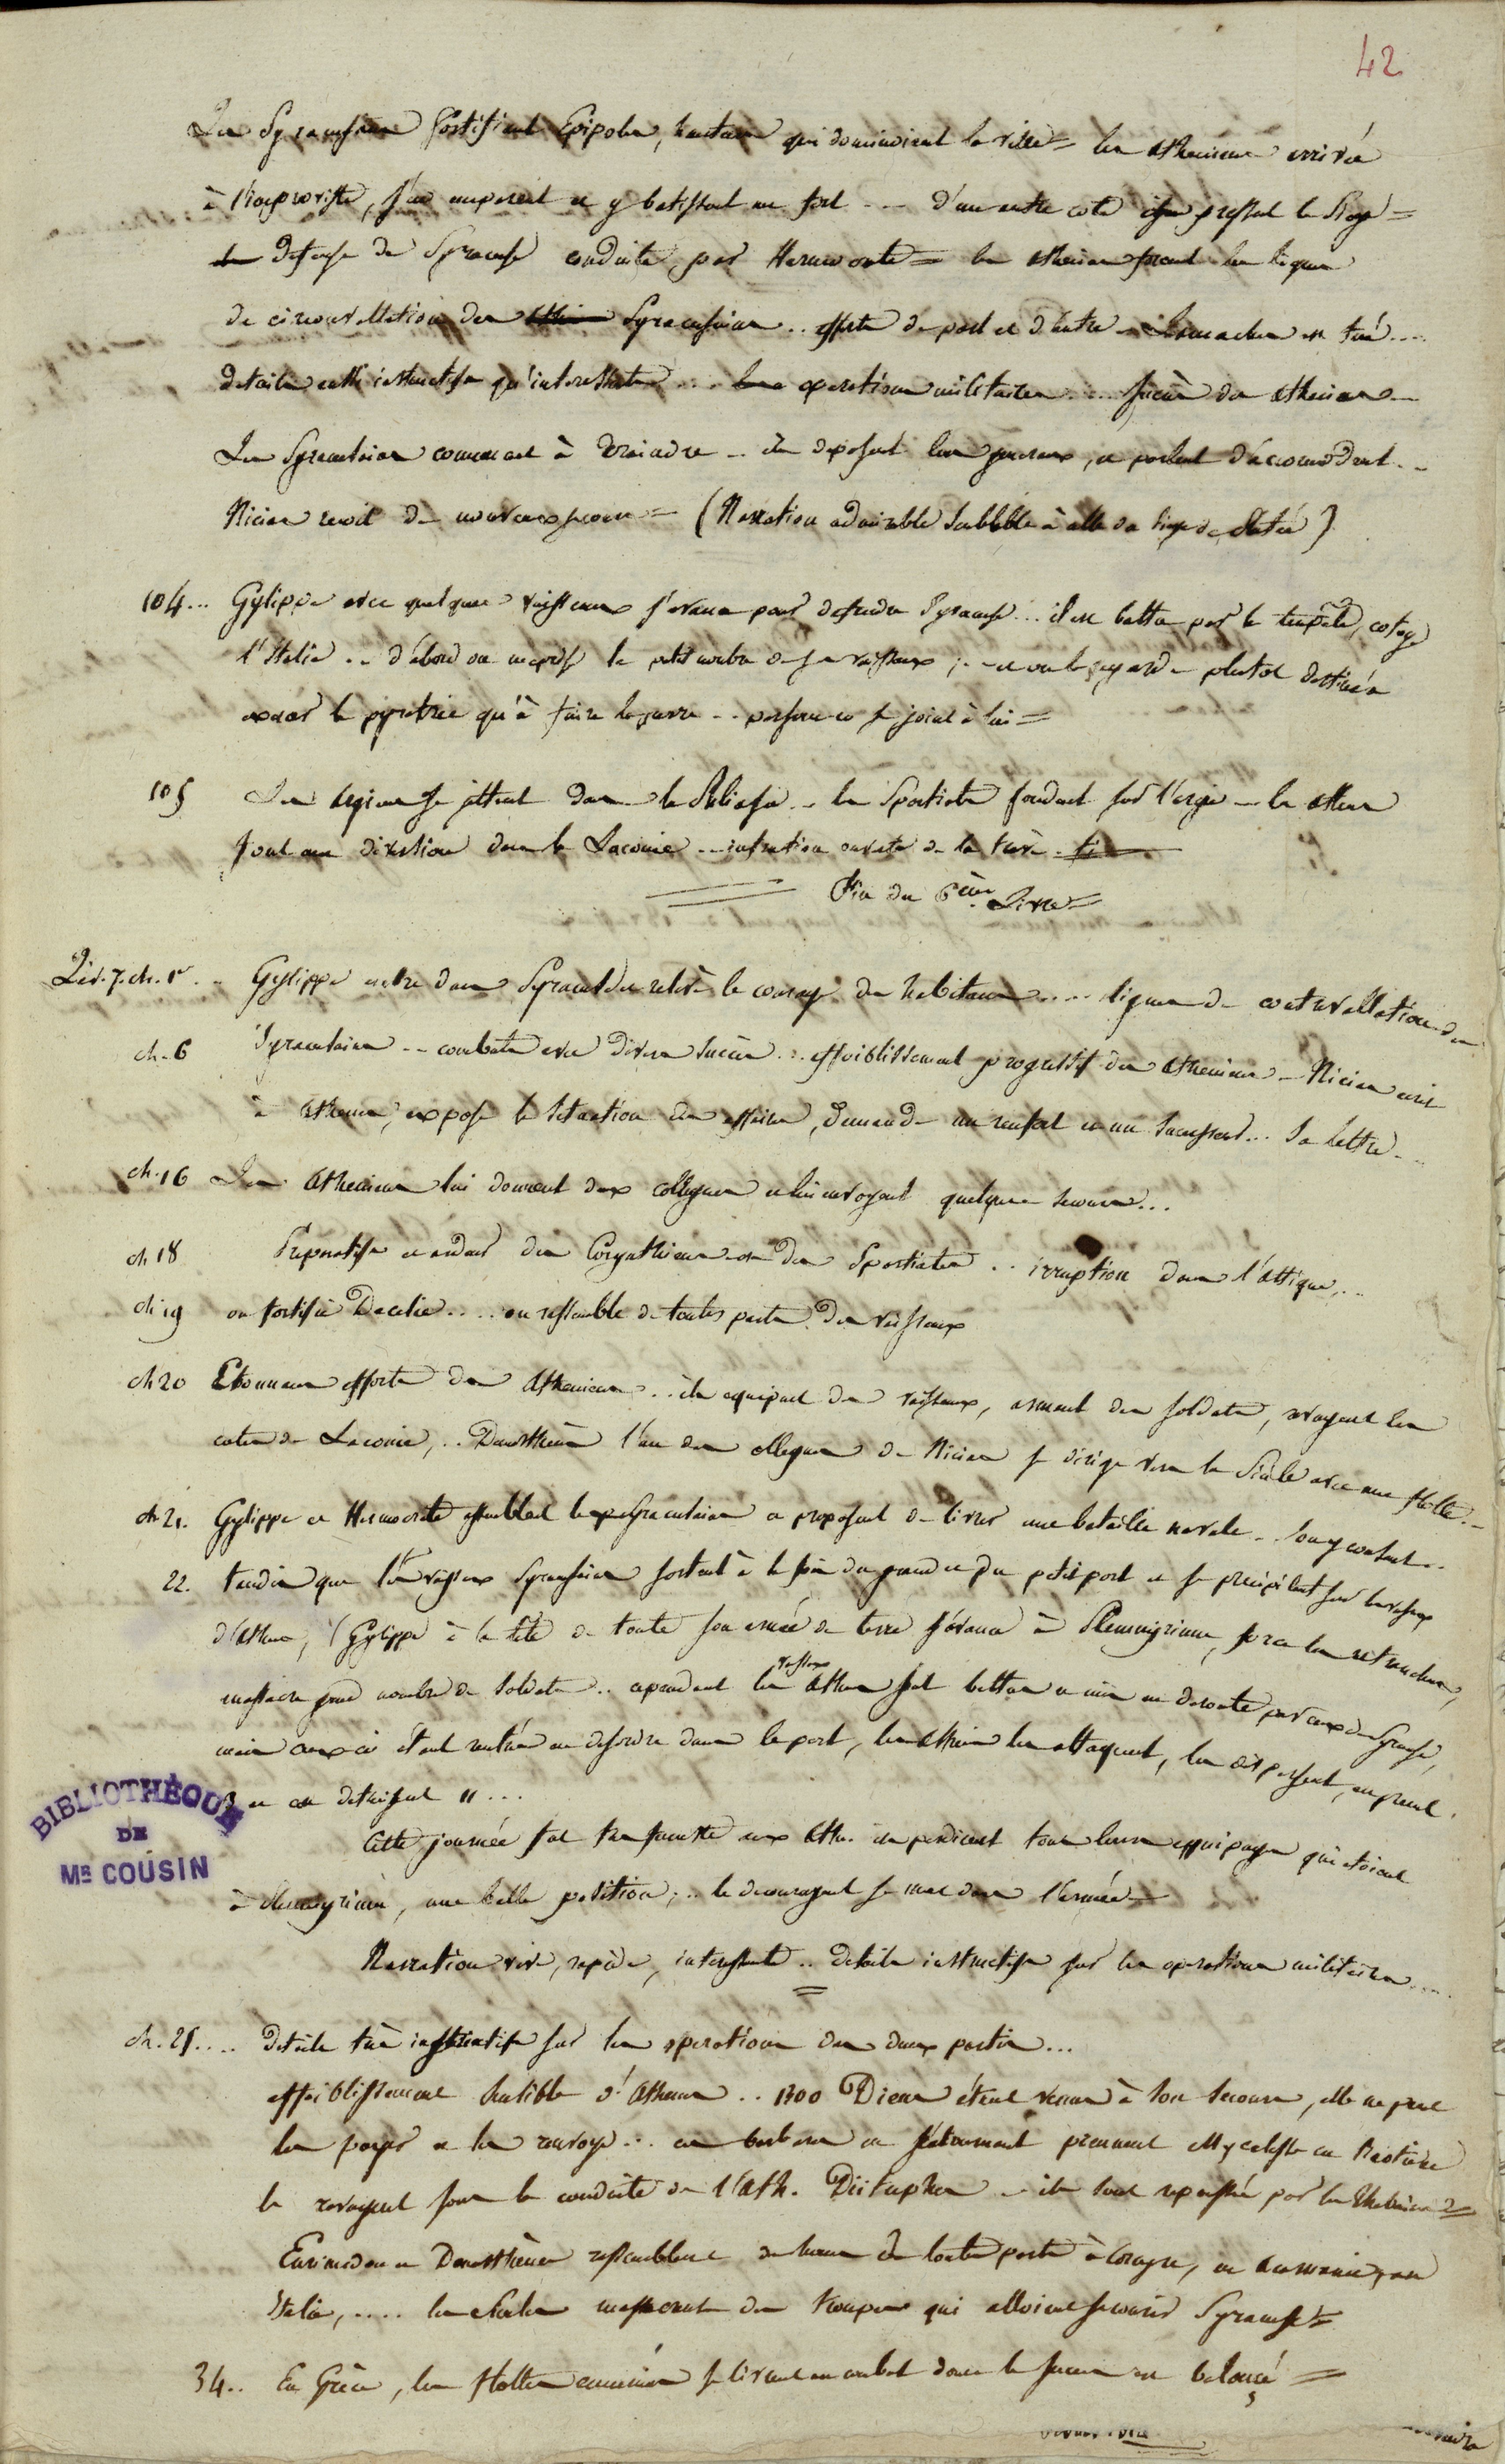 42
Les Syracusains fortifient Epipoles, hauteurs qui dominoient la ville = les atheniens arrivés
à l'improviste, s'en emparent et y batissent un fort --- d'un autre coté ils pressent le siege =
defense de Syracuse conduite par Hermocrate = les atheniens forcent les lignes
de circonvallation des Syracusains .. efforts de part et d'autre - Lamachus est tué ....
details aussi instructifs qu'interessants .... operations militaires .... succès des atheniens --
Les Syracusains commencent à craindre -- ils deposent leurs generaux, et parlent d'accomodement --
Nicias reçoit de nouveaux secours = (Narration admirable semblable à celle du siege de Platée)
104... Gylippe avec quelques vaisseaux s'avance pour defendre Syracuse ... il est battu par la tempête, cotoye
l'Italie .. d'abord on meprise le petit nombre de ses vaisseaux ; - et on le regarde plutot destiné à
exercer la pyraterie qu'à faire la guerre -- personne ne se joint à lui =
105 Les Argiens se jettent dans la Phliasie -- les Spartiates fondent sur l'argie -- les athen
font une diversion dans la Laconie --- infraction ouverte de la trève
Fin du 6ème Livre =
Liv. 7. ch. 1er .. Gylippe entre dans Syracuse et releve le courage des habitans .... lignes de contrevallation des
ch. 6 Syracusains -- combats avec divers succès ... affoiblissement progressif des atheniens - Nicias ecrit
à Athenes, expose la situation des affaires, demande un renfort et un successeur ... sa lettre --
ch. 16 Les Atheniens lui donnent deux collegues et lui envoyent quelques secours...
ch 18 Preparatifs et ardeur des Corynthiens et des Spartiates .. irruption dans l'attique, ..
ch 19 on fortifie Decelie .... on rassemble de toutes parts des vaisseaux
ch 20 Etonnans efforts des Atheniens .. ils equipent des vaisseaux, arment des soldats, ravagent les
cotes de Laconie, .. Demosthène l'un des collegues de Nicias se dirige vers la Sicile avec une flotte --
ch. 21. Gylippe et Hermocrate assemblent les Syracusains et proposent de livrer une bataille navale -- on y consent ..
22. tandis que les vaisseaux Syracusains sortent à la fois du grand et du petit port et se precipitent sur les vaisseaux
d'Athenes, Gylippe à la tête de toute son armée de terre s'avance à Plemmyrium, force les retranchem,
massacre grand nombre de soldats .. cependant les vaisseaux Athen sont battus et mis en deroute par ceux de Syracuse,
mais ceux ci étant rentrés en desordre dans le port, les Athen les attaquent, les dispersent, en prend
3 et en detruisent 11 ...
BIBLIOTHÈQUE
DE
MR COUSIN
Cette journée fut tres funeste aux Athe. ils perdirent tous leurs equipages qui etoient
à Plemmyrium, une belle position; .. le decouragement se met dans l'armée =
Narration vive, rapide, interessante .. details instructifs sur les operations militaires ....
ch. 25.... Details très instructifs sur les operations des deux partis ...
affoiblissement sensible d'Athenes .. 1300 Diens étant venus à son secours, elle ne peut
les payer et les renvoye ... ces barbares en s'retournant prennent Mycalesse en Beotie
la ravagent sous la conduite de l'Ath. Diitrephes -- ils sont repoussés par les Thebains =
Eurimedon et Demosthène rassemblent des hommes de toutes parts à Corcyre, en Acarnanie, en
Italie, .... les Sicules massacrent des troupes qui alloient secourir Syracuse =
34.. En Grèce, les flottes ennemies se livrent un combat dont le succès est balancé =